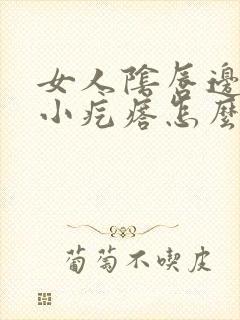 女人陰唇邊
小疙瘩怎麼
葡萄不喫皮